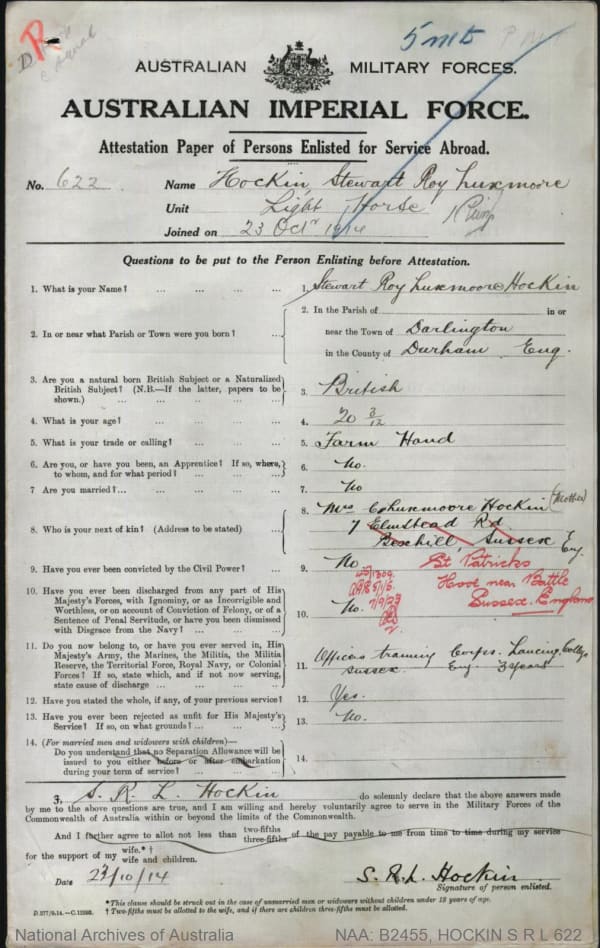 R
D
5 MD
AUSTRALIAN MILITARY FORCES.
AUSTRALIAN IMPERIAL FORCE.
Attestation Paper of Persons Enlisted for Service Abroad.
No. 622 Name Hockin, Stewart Roy Luxmoore
Unit Light Horse
Joined on 23 Octr 1914
Questions to be put to the Person Enlisting before Attestation.
1. What is your Name? ... ... ... ... 1. Stewart Roy Luxmoore Hockin
2. In or near what Parish or Town were you born? ... 2. In the Parish of in or
near the Town of Darlington
in the County of Durham Eng.
3. Are you a natural born British Subject or a Naturalized
British Subject? (N.B.—If the latter, papers to be
shown.) ... ... ... ... 3. British
4. What is your age? ... ... ... ... 4. 20 3/12
5. What is your trade or calling? ... ... ... 5. Farm Hand
6. Are you, or have you been, an Apprentice? If so, where,
to whom, and for what period? ... ... ... 6. No.
7 Are you married? ... ... ... ... 7. No
8. Who is your next of kin? (Address to be stated) ... 8. Mrs C Luxmoore Hockin (Mother)
7 Elmstead Rd
Bexhill, Sussex Eng.
St Patricks
Hooe near Battle
Sussex. England
9. Have you ever been convicted by the Civil Power? ... 9. No
10. Have you ever been discharged from any part of His
Majesty's Forces, with Ignominy, or as Incorrigible and
Worthless, or on account of Conviction of Felony, or of a
Sentence of Penal Servitude, or have you been dismissed
with Disgrace from the Navy? ... ... ... 10. No.
11. Do you now belong to, or have you ever served in, His
Majesty's Army, the Marines, the Militia, the Militia
Reserve, the Territorial Force, Royal Navy, or Colonial
Forces? If so, state which, and if not now serving,
state cause of discharge ... ... ... 11. Officers training Corps. Lancing College
Sussex. Eng 3 years
12. Have you stated the whole, if any, of your previous service? 12. Yes.
13. Have you ever been rejected as unfit for His Majesty's
Service? If so, on what grounds? ... ... 13. No.
14. (For married men and widowers with children)—
Do you understand that no Separation Allowance will be
issued to you either before or after embarkation
during your term of service? ... ... ... 14.
I, S. R. L. Hockin do solemnly declare that the above answers made
by me to the above questions are true, and I am willing and hereby voluntarily agree to serve in the Military Forces of the
Commonwealth of Australia within or beyond the limits of the Commonwealth.
And I further agree to allot not less than two-fifths three-fifths of the pay payable to me from time to time during my service
for the support of my wife.* † wife and children.
Date 23/10/14 S. R. L. Hockin
Signature of person enlisted.
*This clause should be struck out in the case of unmarried men or widowers without children under 18 years of age.
† Two-fifths must be allotted to the wife, and if there are children three-fifths must be allotted.
D.277/9.14.—C.12593.
National Archives of Australia NAA: B2455, HOCKIN S R L 622